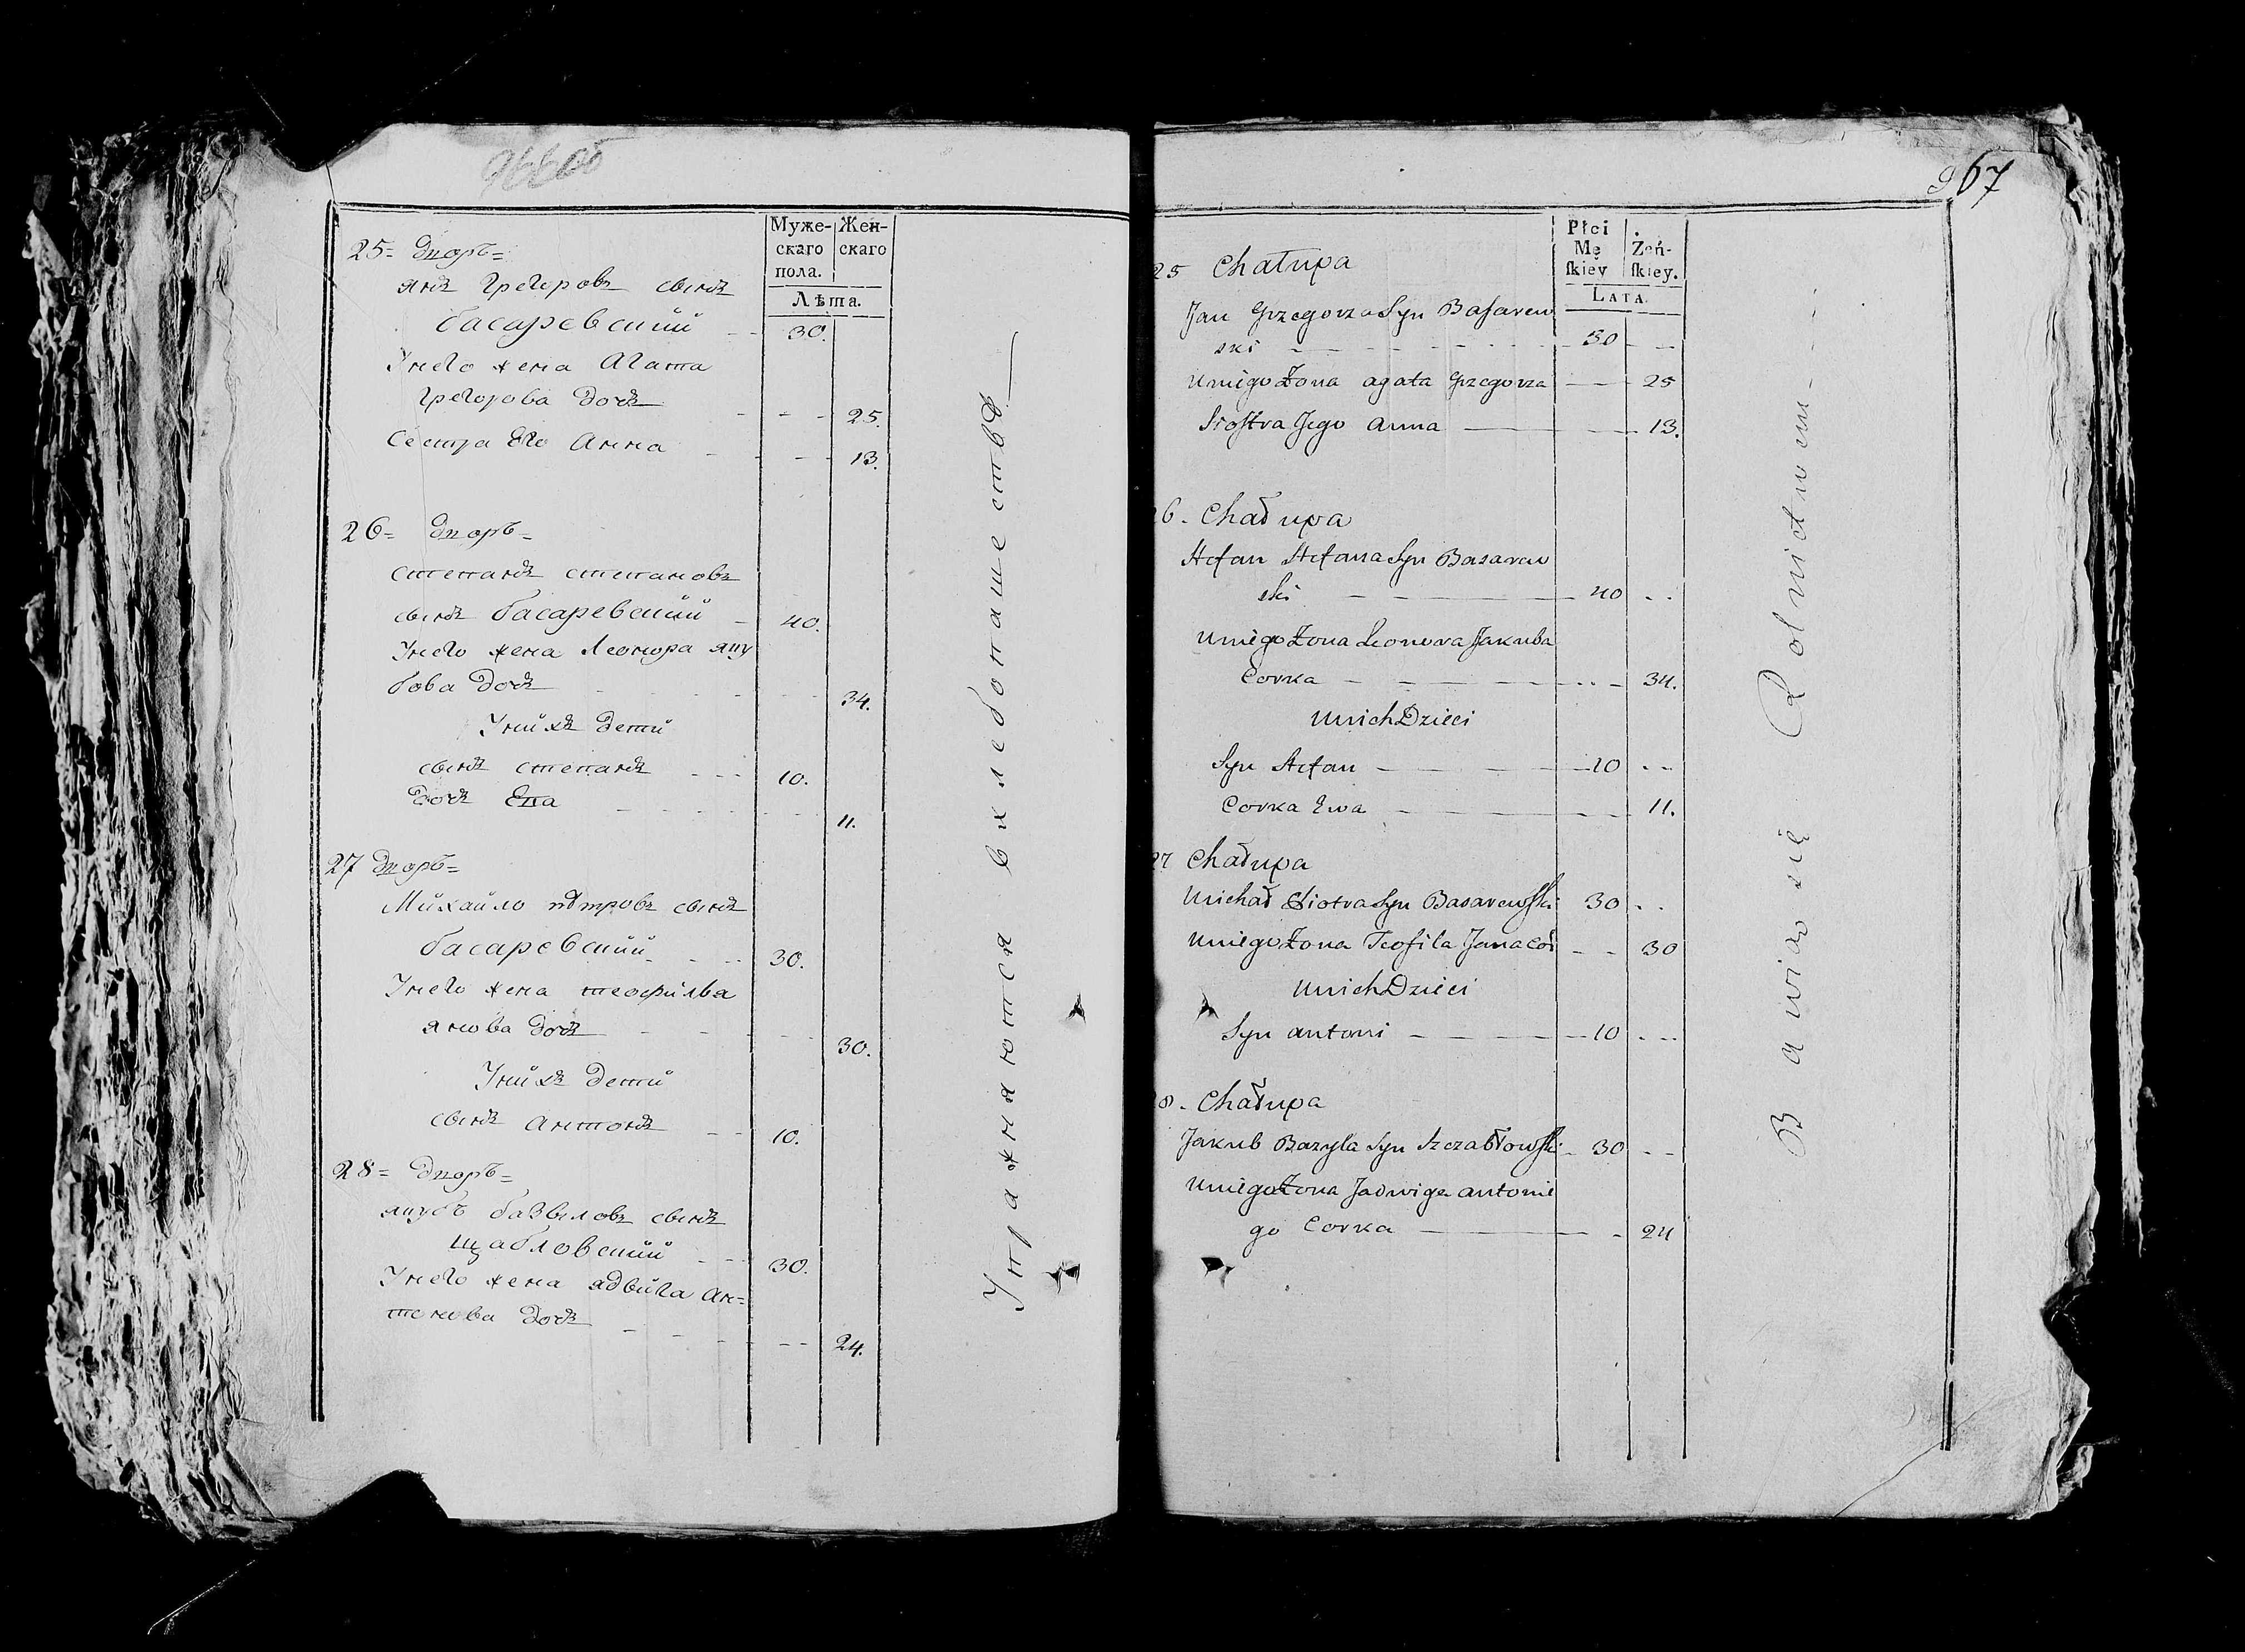 966 об
Муже- Жен-
скаго скаго
пола.
Лѣта.
25= Дворъ=
янъ Грегоровъ сынъ
басаревский 30.
У него жена Агата
Грегорова дочь 25.
Сестра Его Анна 13.
26= Дворъ=
степанъ степановъ
сынъ басаревский 40.
У него жена Леонора яку
бова дочь 34.
У ниихъ дети
сынъ степанъ 10.
дочь Ева 11.
27 Дворъ=
Михайло пѣтровъ сынъ
басаревский 30.
У него жена теофилва
янова дочь 30.
У ниихъ дети
сынъ антонъ 10.
28= Дворъ=
якубъ базыловъ сынъ
щабловский 30.
У него жена ядвига ан=
тонова дочь 24.
Упражняются в хлебопашествѣ
967
Płci
Mę Żeń-
ſkiey ſkiey.
LATA.
25 Chałupa
Jan Grzegorza Syn Baſarew
ski 30
Uniego Żona agata Grzegorza 25
Siostra Jego anna 13.
26. Chałupa
Stefan Stefana Syn Basarew
ski 40
Uniego Żona Leonora Jakuba
Corka 34.
Unich Dzieci
Syn Stefan 10
Corka Ewa 11.
27 Chałupa
Michał Piotra Syn Basarewſki 30
Uniego Żona Teofila Jana Cór 30
Unich Dzieci
Syn antoni 10
28. Chałupa
Jakub Bazyla Syn Szczabłowſki 30
Uniego Żona Jadwiga antonie
go Corka 24
Bawią się Rolnictwem